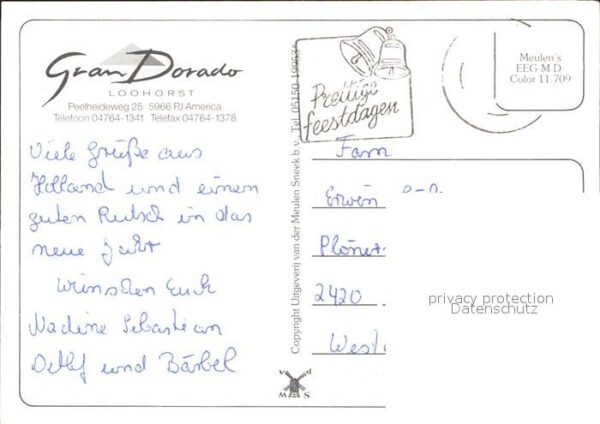 Gran Dorado
LOOHORST
Peelheideweg 25 5966 PJ America
Telefoon 04764-1341 Telefax 04764-1378
Viele Grüße aus
Holland und einen
guten Rutsch in das
neue Jahr
wünschen Euch
Nadine Sebastian
Detlef und Bärbel
Copyright Uitgeverij van der Meulen Sneek b.v. Tel. 05150-19963*
v d
M S
Prettige
feestdagen
Meulen's
EEG-M-D
Color 11.709
Fam
Erwin
Plöner
2420
privacy protection
Datenschutz